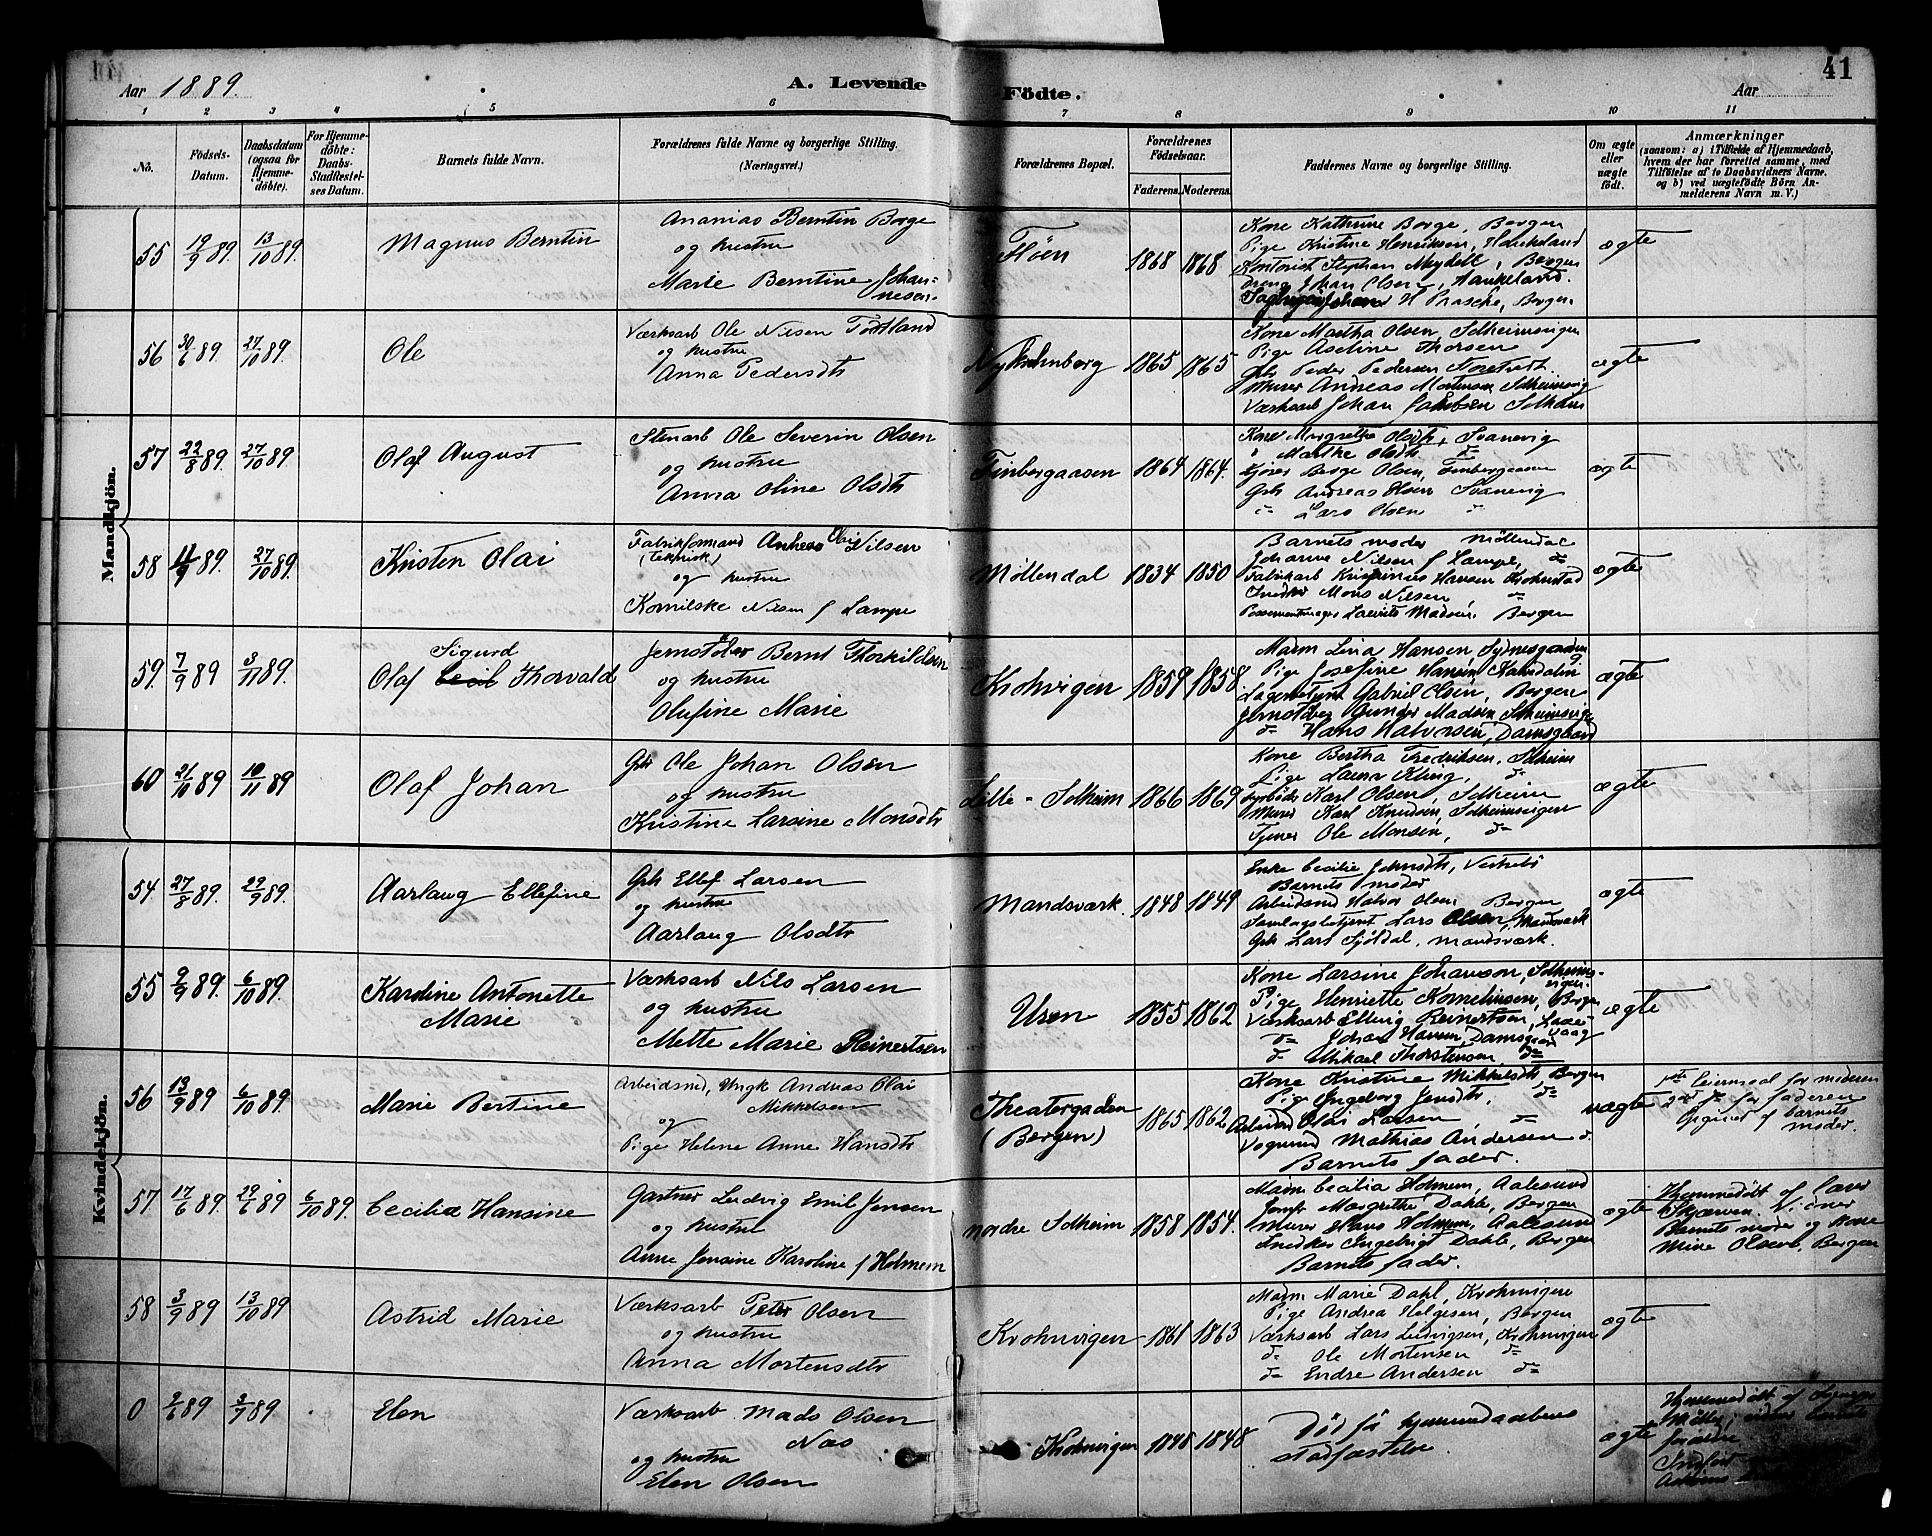 Aar 1889.
A. Levende Fødte.
Aar
41
1 2 3 4 5 6 7 8 9 10 11
No.
Födsels-Datum.
Daabsdatum (ogsaa for Hjemme-döbte).
For Hjemme-döbte: Daabs-Stadfæstel-ses Datum.
Barnets fulde Navn.
Forældrenes fulde Navne og borgerlige Stilling.
(Næringsvei.)
Forældrenes Bopæl.
Forældrenes Födselsaar.
Faderens. Moderens.
Faddernes Navne og borgerlige Stilling.
Om ægte eller uægte födt.
Anmærkninger
(saasom: a) i Tilfælde af Hjemmedaab, hvem der har forrettet samme, med Tilföielse af to Daabsvidners Navne, og b) ved uægtefödte Börn An-melderens Navn m. V.)
Mandkjön.
55 19/9 89. 13/10 89. Magnus Berntin
Ananias Berntin Borge
og hustru
Marie Berntine Johan-
nesen.
Fløen 1868 1868
Kone Kathrine Borge, Bergen
Pige Kristine Henriksen, Haukeland
Kontorist Stephan Mydell, Bergen
Dreng Johan Olsen, Haukeland.
Johan H Prasche, Bergen
ægte
56 30/6 89. 27/10 89. Ole
Værksarb Ole Nilsen Tortland
og hustru
Anna Pedersdtr
Nykrohnborg 1865 1865
Kone Martha Olsen, Solheimsvigen
Pige Aseline Thorsen
Gbr Peder Pedersen
Murer Andreas Mortensen Solheimsvig
Værksarb Johan Jakobsen Solheim
ægte
57 22/8 89. 27/10 89 Olaf August
Stenarb Ole Severin Olsen
og hustru
Anna Oline Olsdtr
Finbergaasen 1864 1864.
Kone Margrethe Olsdtr, Svanevig
" Marthe Olsdtr d=
Berge Olsen, Finbergaasen
Gbr Andreas Olsen Svanevig
Lars Olsen "
ægte
58 11/9 89. 27/10 89. Kristen Olai
Fabrikformand Andreas Olai Nilsen
(teknisk)
og hustru
Kornilske Nilsen f Lampe
Møllendal 1834 1850
Barnets moder Møllendal
Johanne Nilsen f Lampe, d=
Fabrikarb Kristinus Hansen Krohnstad
Snedker Mons Nilsen, d=
Possementmager Laurits Madsen, Bergen
ægte
59. 7/9 89 3/11 89.
Sigurd
Olaf Cecil Thorvald
Jernstøber Bernt Thorkildsen
og hustru
Olufine Marie
Krohnvigen 1859 1858
Madm Lina Hansen, Sydnesgaarden
Pige Josefine Hansen Kalmdalen
Lagerbetjent Gabriel Olsen, Bergen
Jernstøber Gunder Madsen Solheimsvigen
d= Hans Halvorsen, Damsgaard
ægte
60 21/10 89 10/11 89 Olaf Johan
Gbr Ole Johan Olsen
og hustru
Kristine Larsine Monsdtr
Lille-Solheim 1866 1869
Kone Bertha Fredriksen, Solheim
Pige Laura Kling, d=
Fyrbøder Karl Olsen, Solheim
Murer Karl Knudsen, Solheimsvigen
Tjener Ole Monsen, d=
ægte
Kvindekjön.
54 27/8 89. 29/9 89. Aarlaug Ellefine
Gbr Ellef Larsen
og hustru
Aarlaug Olsdtr
Mandsværk. 1848 1849
Enke Cecilie Johnsdtr, Vestrebø
Barnets moder
Arbeidsmd Halvor Olsen Bergen
Samlagsbetjent Lars Olsen, Mandsværk
Gbr Lars Sjøldal, Mandsværk.
ægte
55 9/9 89. 6/10 89. Karoline Antonette
Marie
Værksarb Nils Larsen
og hustru
Mette Marie Reinertsen
Uren 1855 1862
Kone Larsine Johanson, Solheims-
vigen.
Pige Henriette Kornelinsen, Bergen
Værksarb Elling Reinertsen, Laxe-
vaag
d= Johan Hansen, Damsgaard
d= Mikael Thorstensen d=
ægte
56 13/9 89 6/10 89. Marie Bertine
Arbeidsmd, Ungk Andreas Olai
Mikkelsen
og
Pige Helene Anne Hansdtr
Theatergaden
(Bergen)
1865 1862
Kone Kristine Mikkelsdtr Bergen
Pige Ingeborg Jensdtr, d=
Arbmd Olai Larsen d=
Vognmd Mathias Andersen d.
Barnets fader.
uægte
1ste leiermaal for moderen
2det d= for faderen
Opgivet af barnets
moder.
57 17/6 89. 29/6 89 6/10 89. Cecilia Hansine
Gartner Ludvig Emil Jensen
og hustru
Anne Jensine Karoline f Holmem
Nordre Solheim 1858 1854.
Madm Cecilia Holmem, Aalesund
Jomfr Margrethe Dahle, Bergen
Murer Hans Holmem, Aalesund
Snedker Ingebrigt Dahle, Bergen
Barnets fader.
ægte
Hjemmedøbt af lærer
Skjærven. Vidner
Barnets moder og Kone
Mine Olsen, Bergen
58 3/9 89 13/10 89 Astrid Marie
Værksarb Peter Olsen
og hustru
Anna Mortensdtr
Krohnvigen 1861 1863
Madm Marie Dahl, Krohnvigen
Pige Andrea Helgesen, Bergen
Værksarb Lars Ludvigsen, Krohnvigen
d= Ole Mortensen d=
d= Endre Andersen d=
ægte
0 2/6 89 2/7 89 Elen
Værksarb. Mads Olsen
Næs
og hustru
Elen Olsen
Krohnvigen 1848 1848
Død før hjemmedaabens
stadfæstelse.
ægte
Hjemmedøbt af
Møller, vidner barnets
forældre
Indført